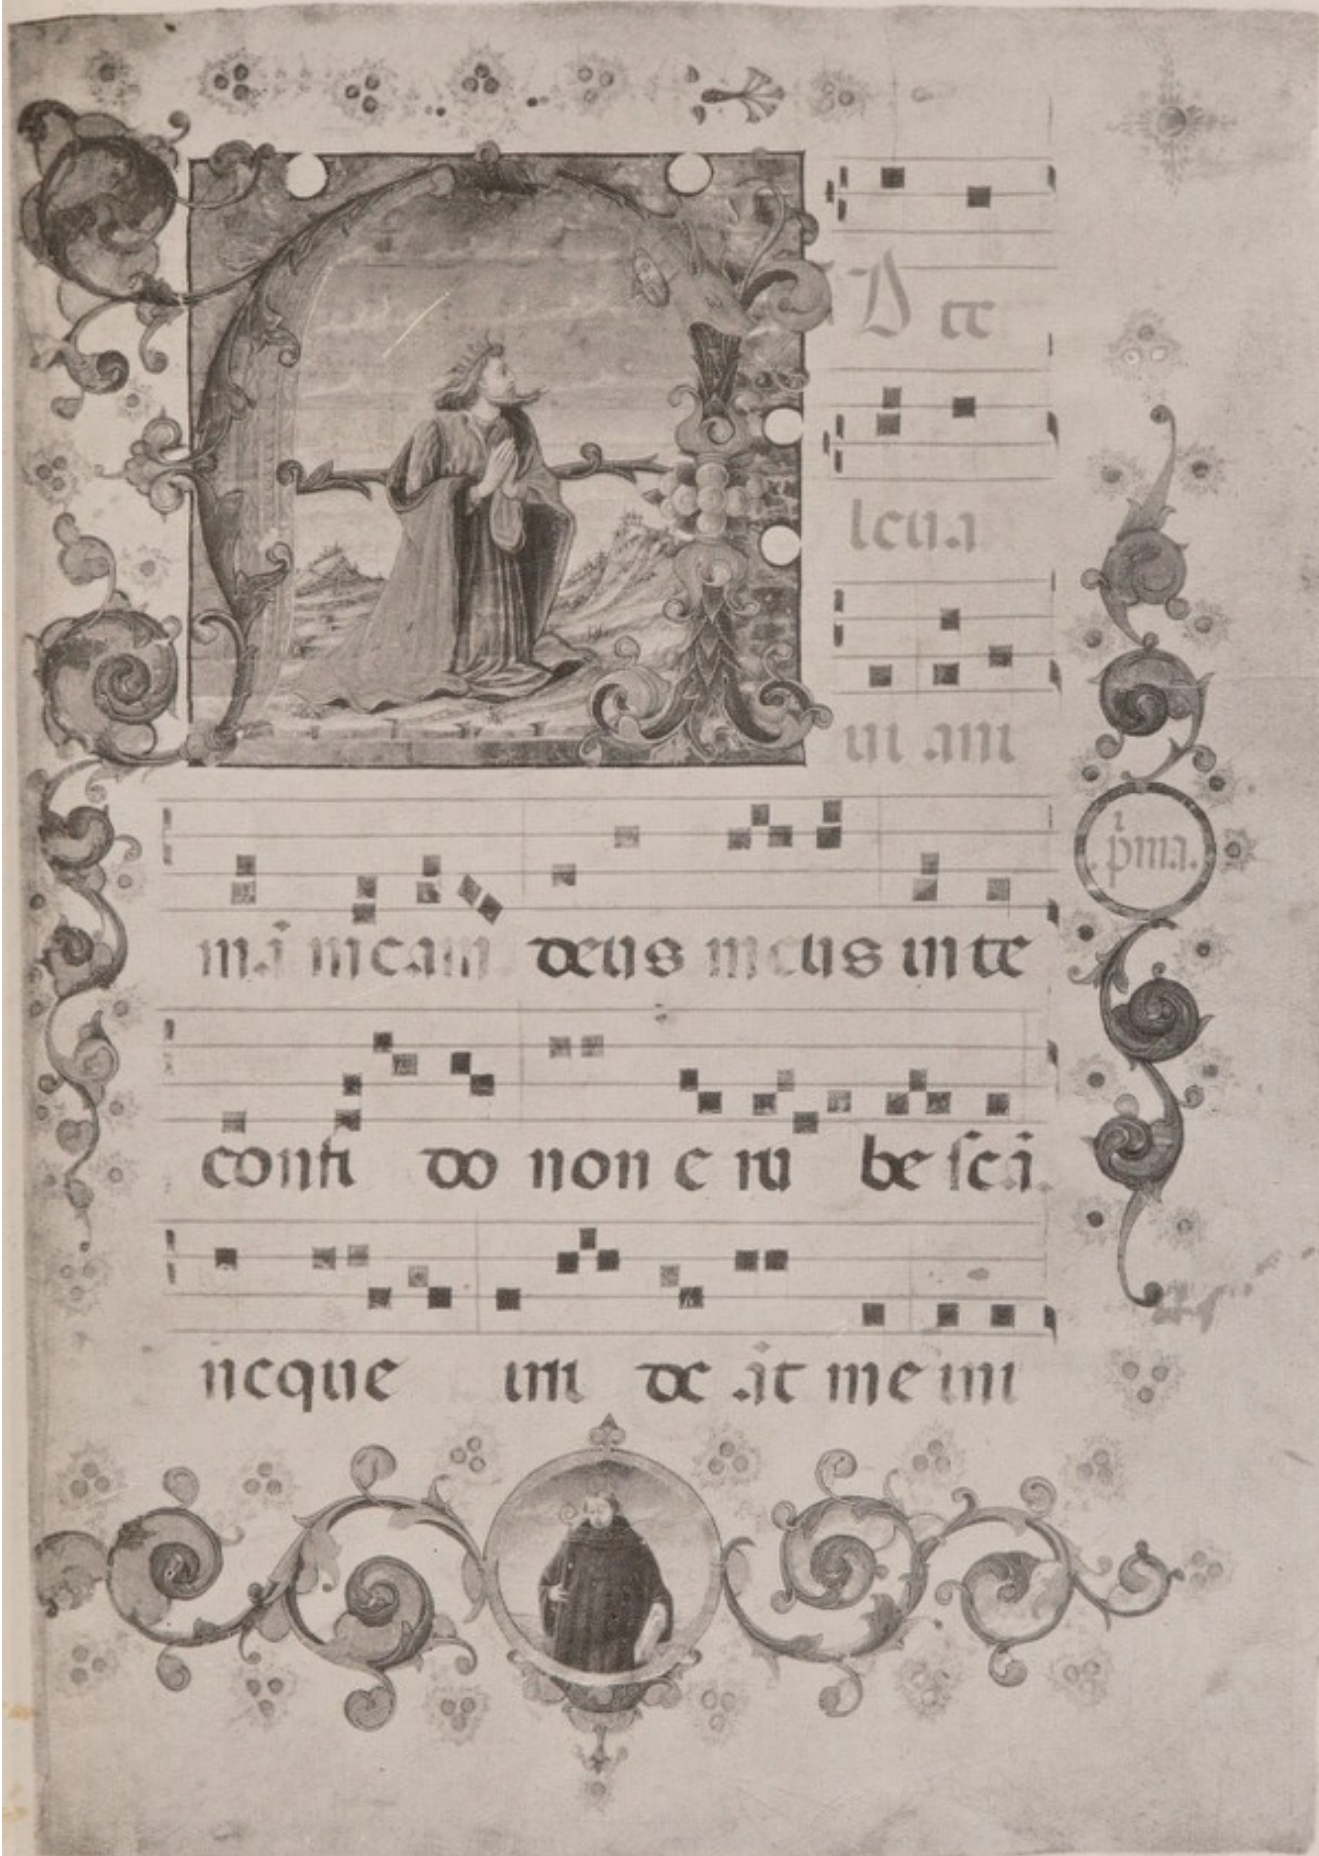 D te
leua
ui ani
mā meam deus meus in te
confi do non e ru be scā
neque irri de āt me ini
.pᵢma.